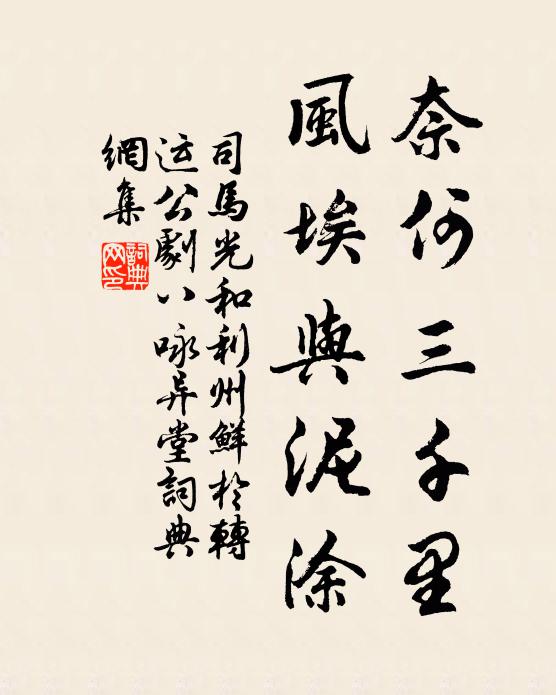 奈何三千里
風埃與泥涂
司馬光和利州鮮於轉
运公劇八咏异堂詞典
網集
詞典網印